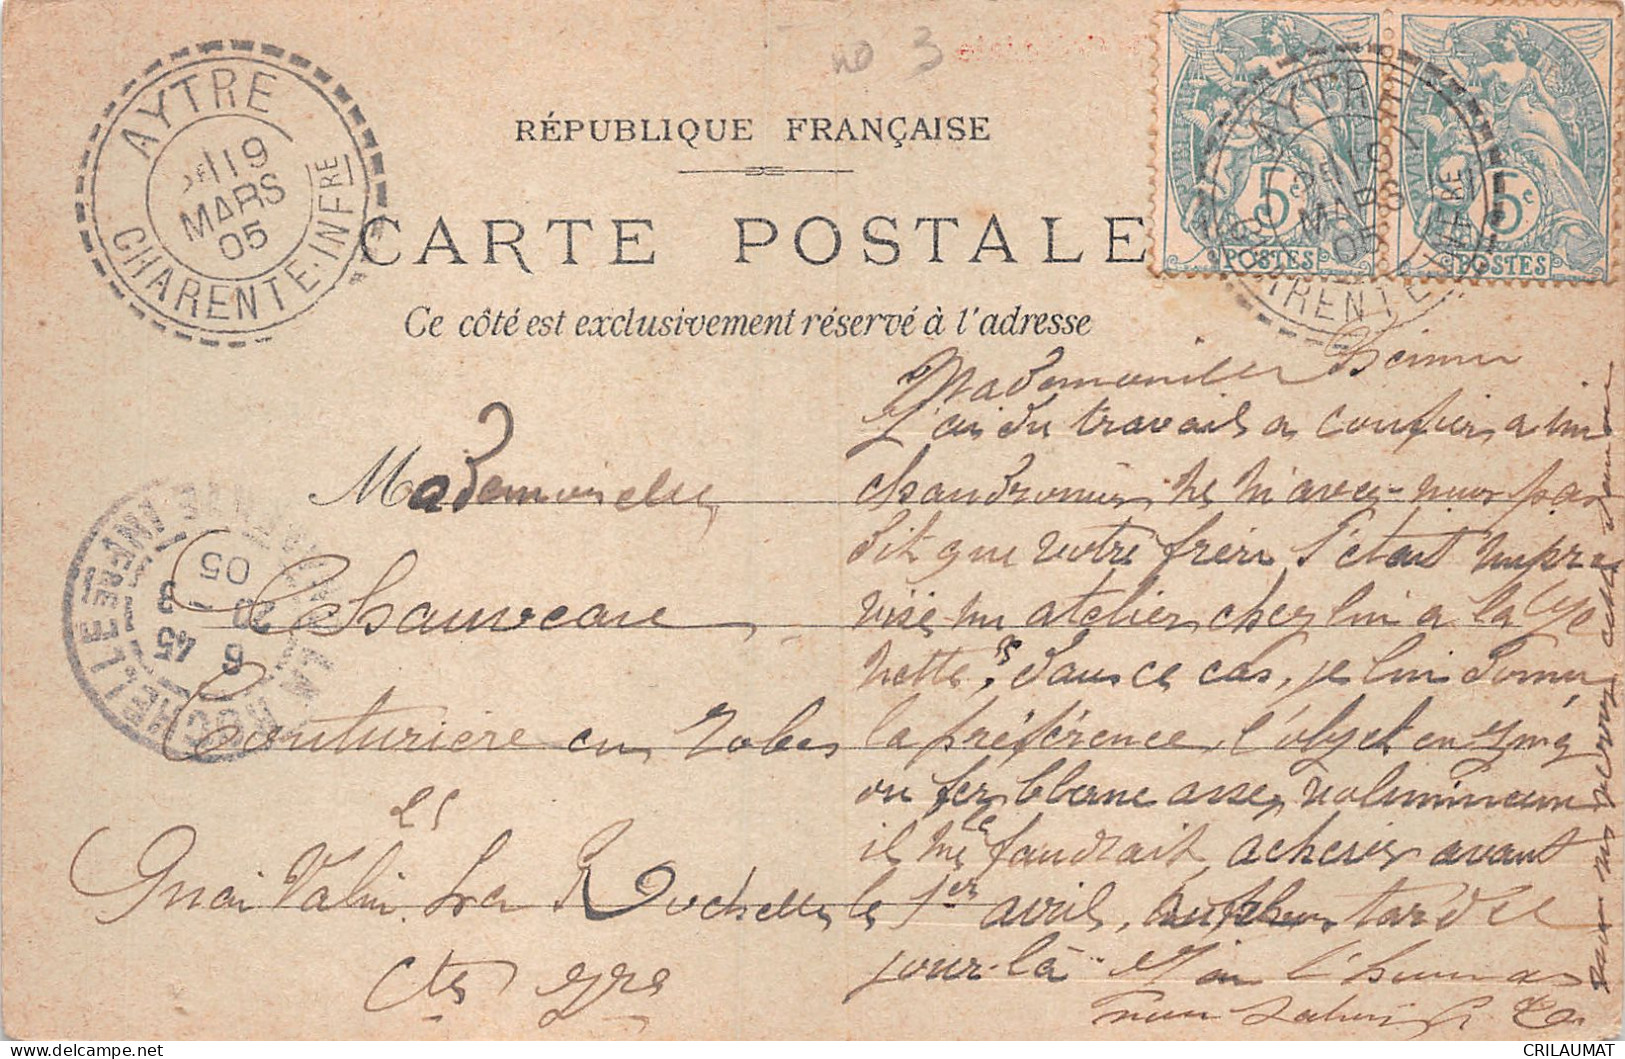 no 3
RÉPUBLIQUE FRANÇAISE
CARTE POSTALE
Ce côté est exclusivement réservé à l'adresse
AYTRE
19
MARS
05
CHARENTE-INFRE
5c
POSTES
5c
POSTES
AYTRE
MARS
05
LA ROCHELLE
INFRE
6 45
20 3
05
Mademoiselle
Chauveau
Couturière en robes
25
Quai Valin. La Rochelle
Cte Infre
Mademoiselle
J'ai du travail a confier a un
chaudronnier, ne m'avez-vous pas
dit que votre frère s'était impro
visé un atelier chez lui a la Ge
nette, dans ce cas, je lui donne
la préférence, l'objet en zing
ou fer blanc assez volumineux
il me le faudrait achever avant
le 1er avril, au plus tard ce
jour-là